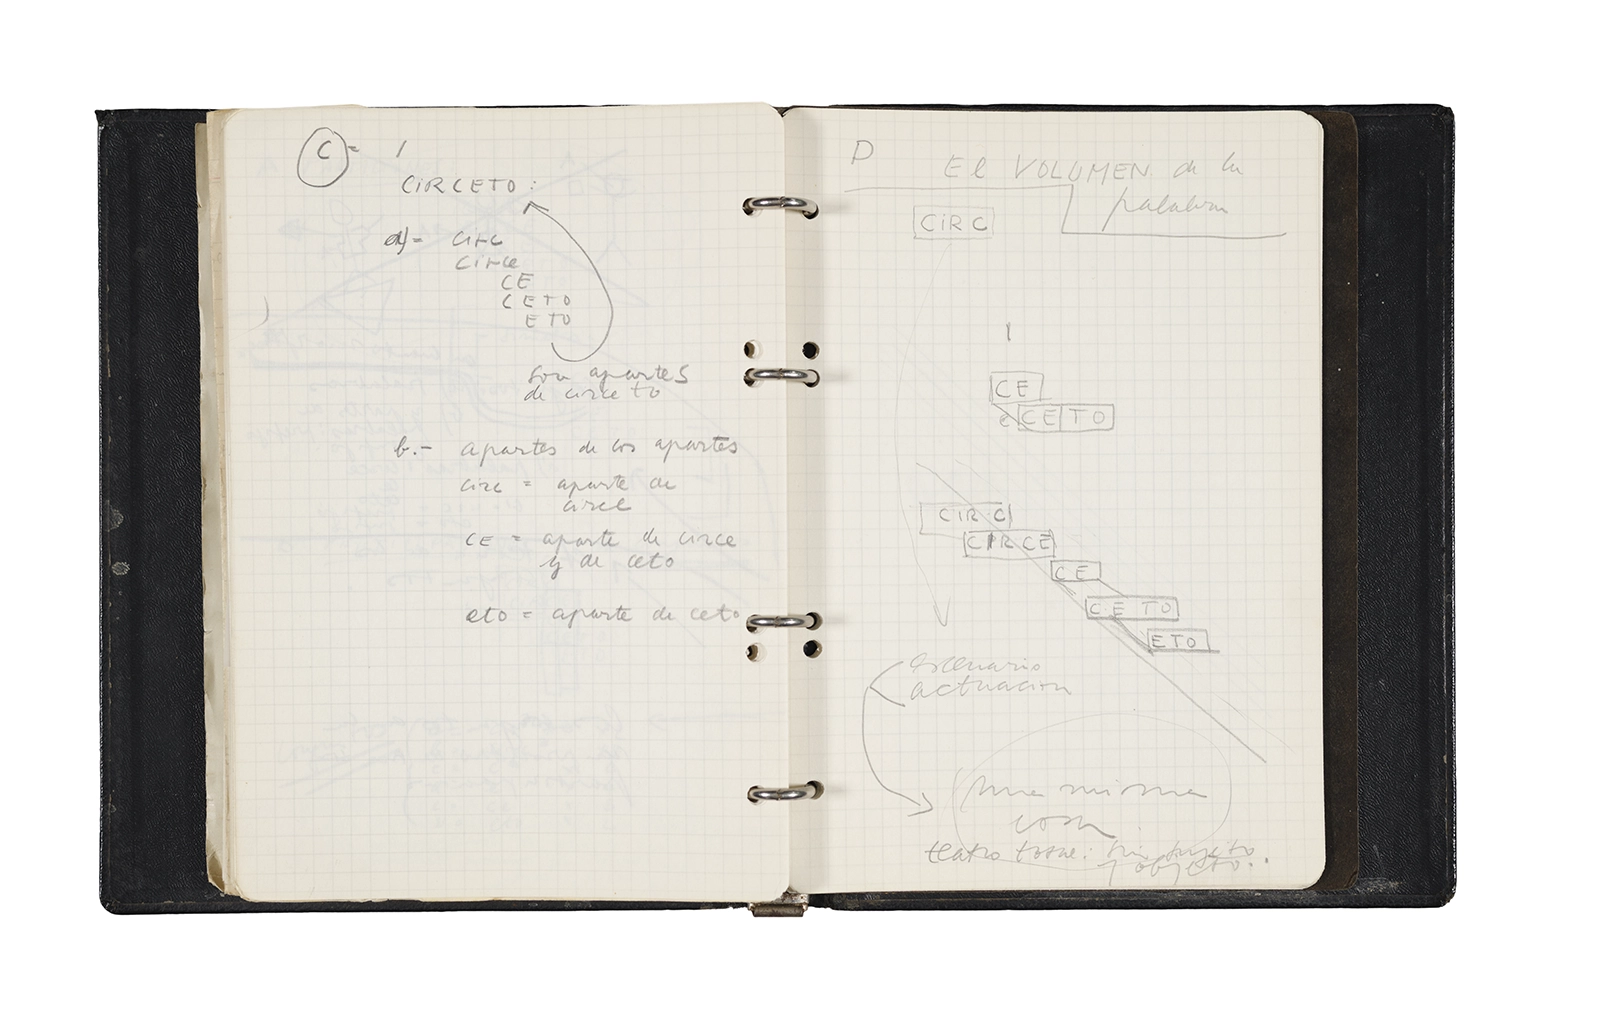 C = 1
CIRCETO:
a) = circ
circe
CE
CETO
ETO
son apartes
de circeto
b.- apartes de los apartes
circ = aparte de
circe
CE = aparte de circe
y de ceto
eto = aparte de ceto
D
El VOLUMEN de la
palabra
CIRC
1
CE
CETO
CIRC
CIRCE
CE
CETO
ETO
escenario
actuación
una misma
cosa
teatro total: sin sujeto
y objeto..